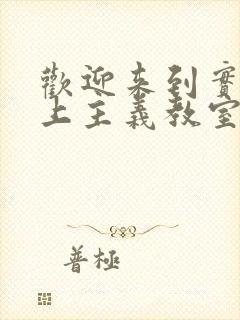 歡迎來到實
上主義教室
普極